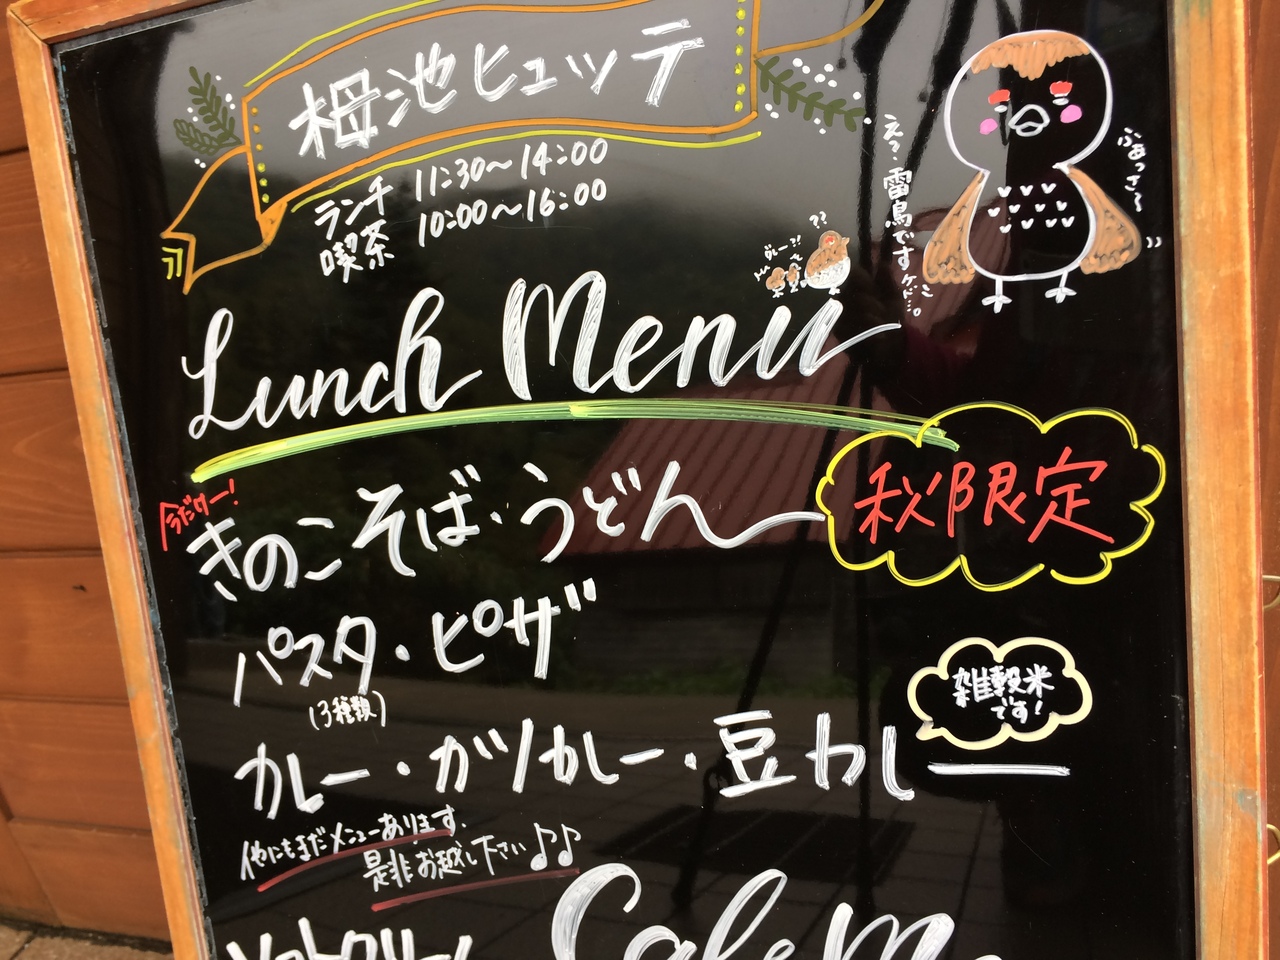 栂池ヒュッテ
ランチ 11:30〜14:00
喫茶 10:00〜16:00
ふぁっさ〜
え、雷鳥ですケド…。
??
Lunch Menu
今だけー!
きのこそば・うどん
秋限定
パスタ・ピザ
(3種類)
雑穀米
です!
カレー・ガツカレー・豆カレー
他にもまだメニューあります。
是非お越し下さい♪♪
ソフトクリーム
Cafe M